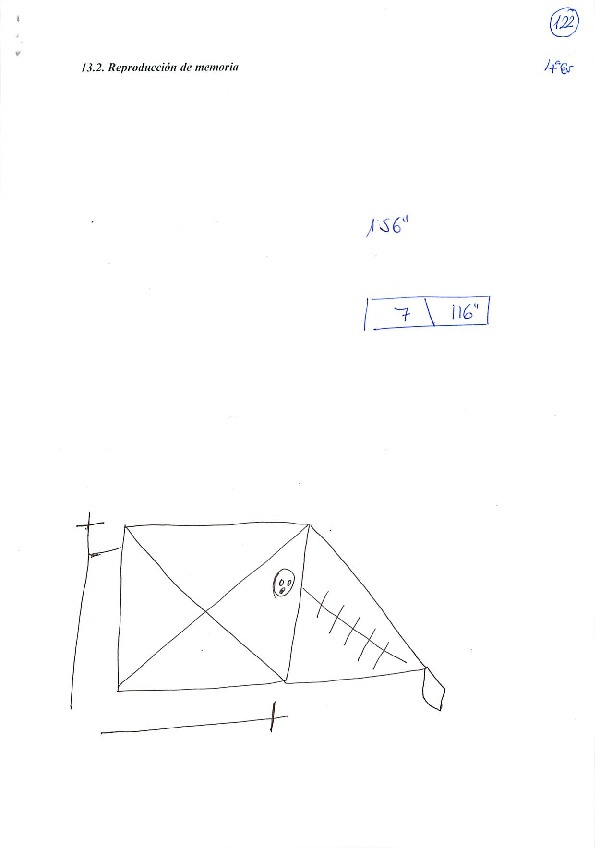 122
13.2. Reproducción de memoria
4º Ev
156"
7 \ 116"